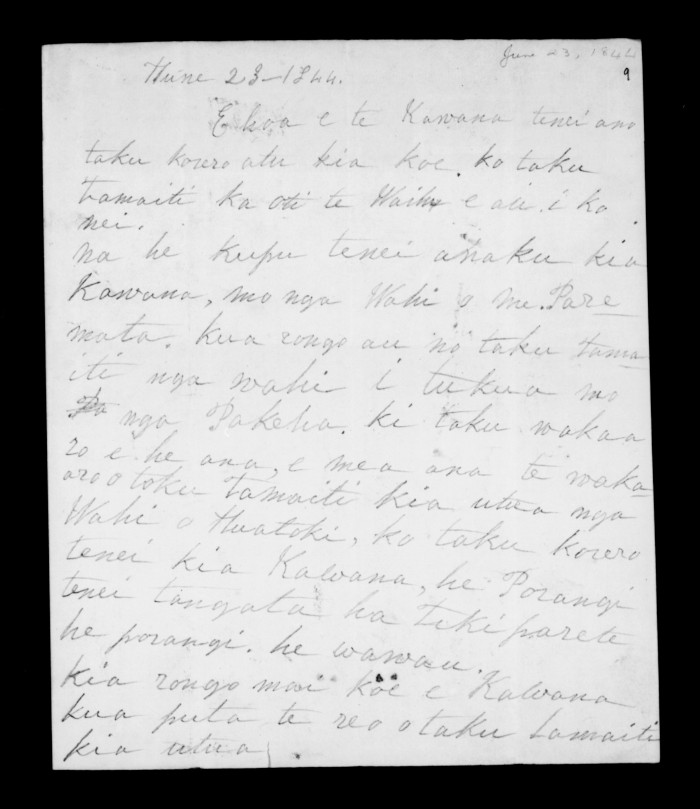 June 23, 1844
9
Hune 23-1844.
E hoa e te Kawana tenei ano
taku korero atu kia koe. ko taku
tamaiti ka oti te Waihu e au. i ko
nei.
na he kupu tenei anaku kia
Kawana, mo nga Wahi o me. Pare-
mata. kua rongo au no taku tama-
iti nga wahi i tukua mo
nga Pakeha. ki taku wakaa
ro e he ana, e mea ana te waka-
aro o toku tamaiti kia utua nga
Wahi o Huatoki, ko taku korero
tenei kia Kawana, he Porangi
tenei tangata ha Tiki parete
he porangi. he wawau.
kia rongo mai koe e Kawana
kua puta te reo o taku tamaiti
kia utua